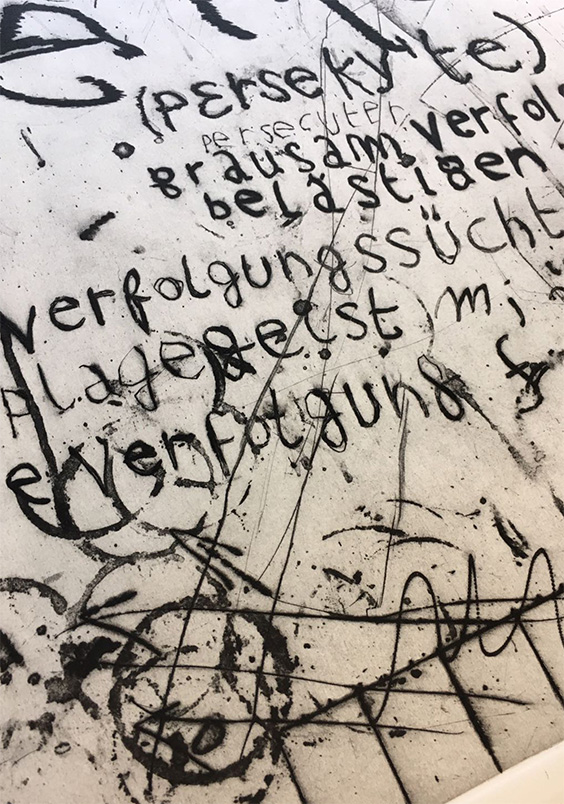 (persekyte)
persecuter
grausam verfol
belästigen
verfolgungssücht
plagegeist
verfolgung